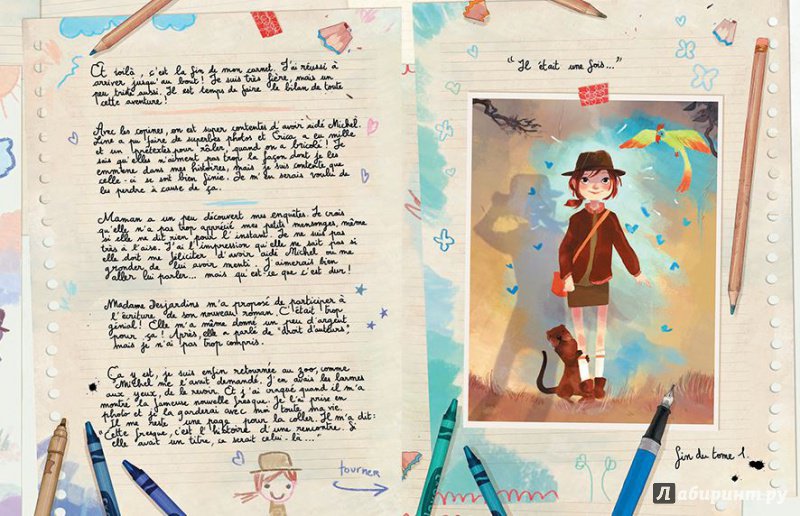 Et voilà, c'est la fin de mon carnet. J'ai réussi à
arriver jusqu'au bout! Je suis très fière, mais un
peu triste aussi. Il est temps de faire le bilan de toute
cette aventure!
Avec les copines, on est super contentes d'avoir aidé Michel.
Line a pu faire de superbes photos et Erica a eu mille
et un prétextes pour râler, quand on a bricolé! Je
sais qu'elles n'aiment pas trop la façon dont je les
emmène dans mes histoires, mais je suis contente que
celle-ci se soit bien finie. Je m'en serais voulu de
les perdre à cause de ça.
Maman a un peu découvert mes enquêtes. Je crois
qu'elle n'a pas trop apprécié mes petits mensonges, même
si elle ne dit rien pour l'instant. Je ne suis pas
très à l'aise. J'ai l'impression qu'elle ne sait pas si
elle doit me féliciter d'avoir aidé Michel ou me
gronder de lui avoir menti. J'aimerais bien
aller lui parler... mais qu'est-ce que c'est dur!
Madame Desjardins m'a proposé de participer à
l'écriture de son nouveau roman. C'était trop
génial! Elle m'a même donné un peu d'argent
pour ça! Après, elle a parlé de "droit d'auteurs",
mais je n'ai pas trop compris.
Ça y est, je suis enfin retournée au zoo, comme
Michel me l'avait demandé. J'en avais les larmes
aux yeux, de le revoir. Et j'ai craqué quand il m'a
montré la fameuse nouvelle fresque. Je l'ai prise en
photo et je la garderai avec moi toute ma vie.
Il me reste une page pour la coller. Il m'a dit:
"Cette fresque, c'est l'histoire d'une rencontre. Si
elle avait un titre, ce serait celui-là..."
tourner
"Il était une fois..."
Fin du tome 1.
Лабиринт.ру